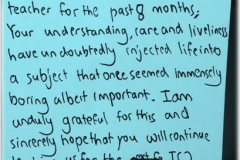 teacher for the past 8 months;
Your understanding, care and liveliness
have undoubtedly injected life into
a subject that once seemed immensely
boring albeit important. I am
unduly grateful for this and
sincerely hope that you will continue
us for the